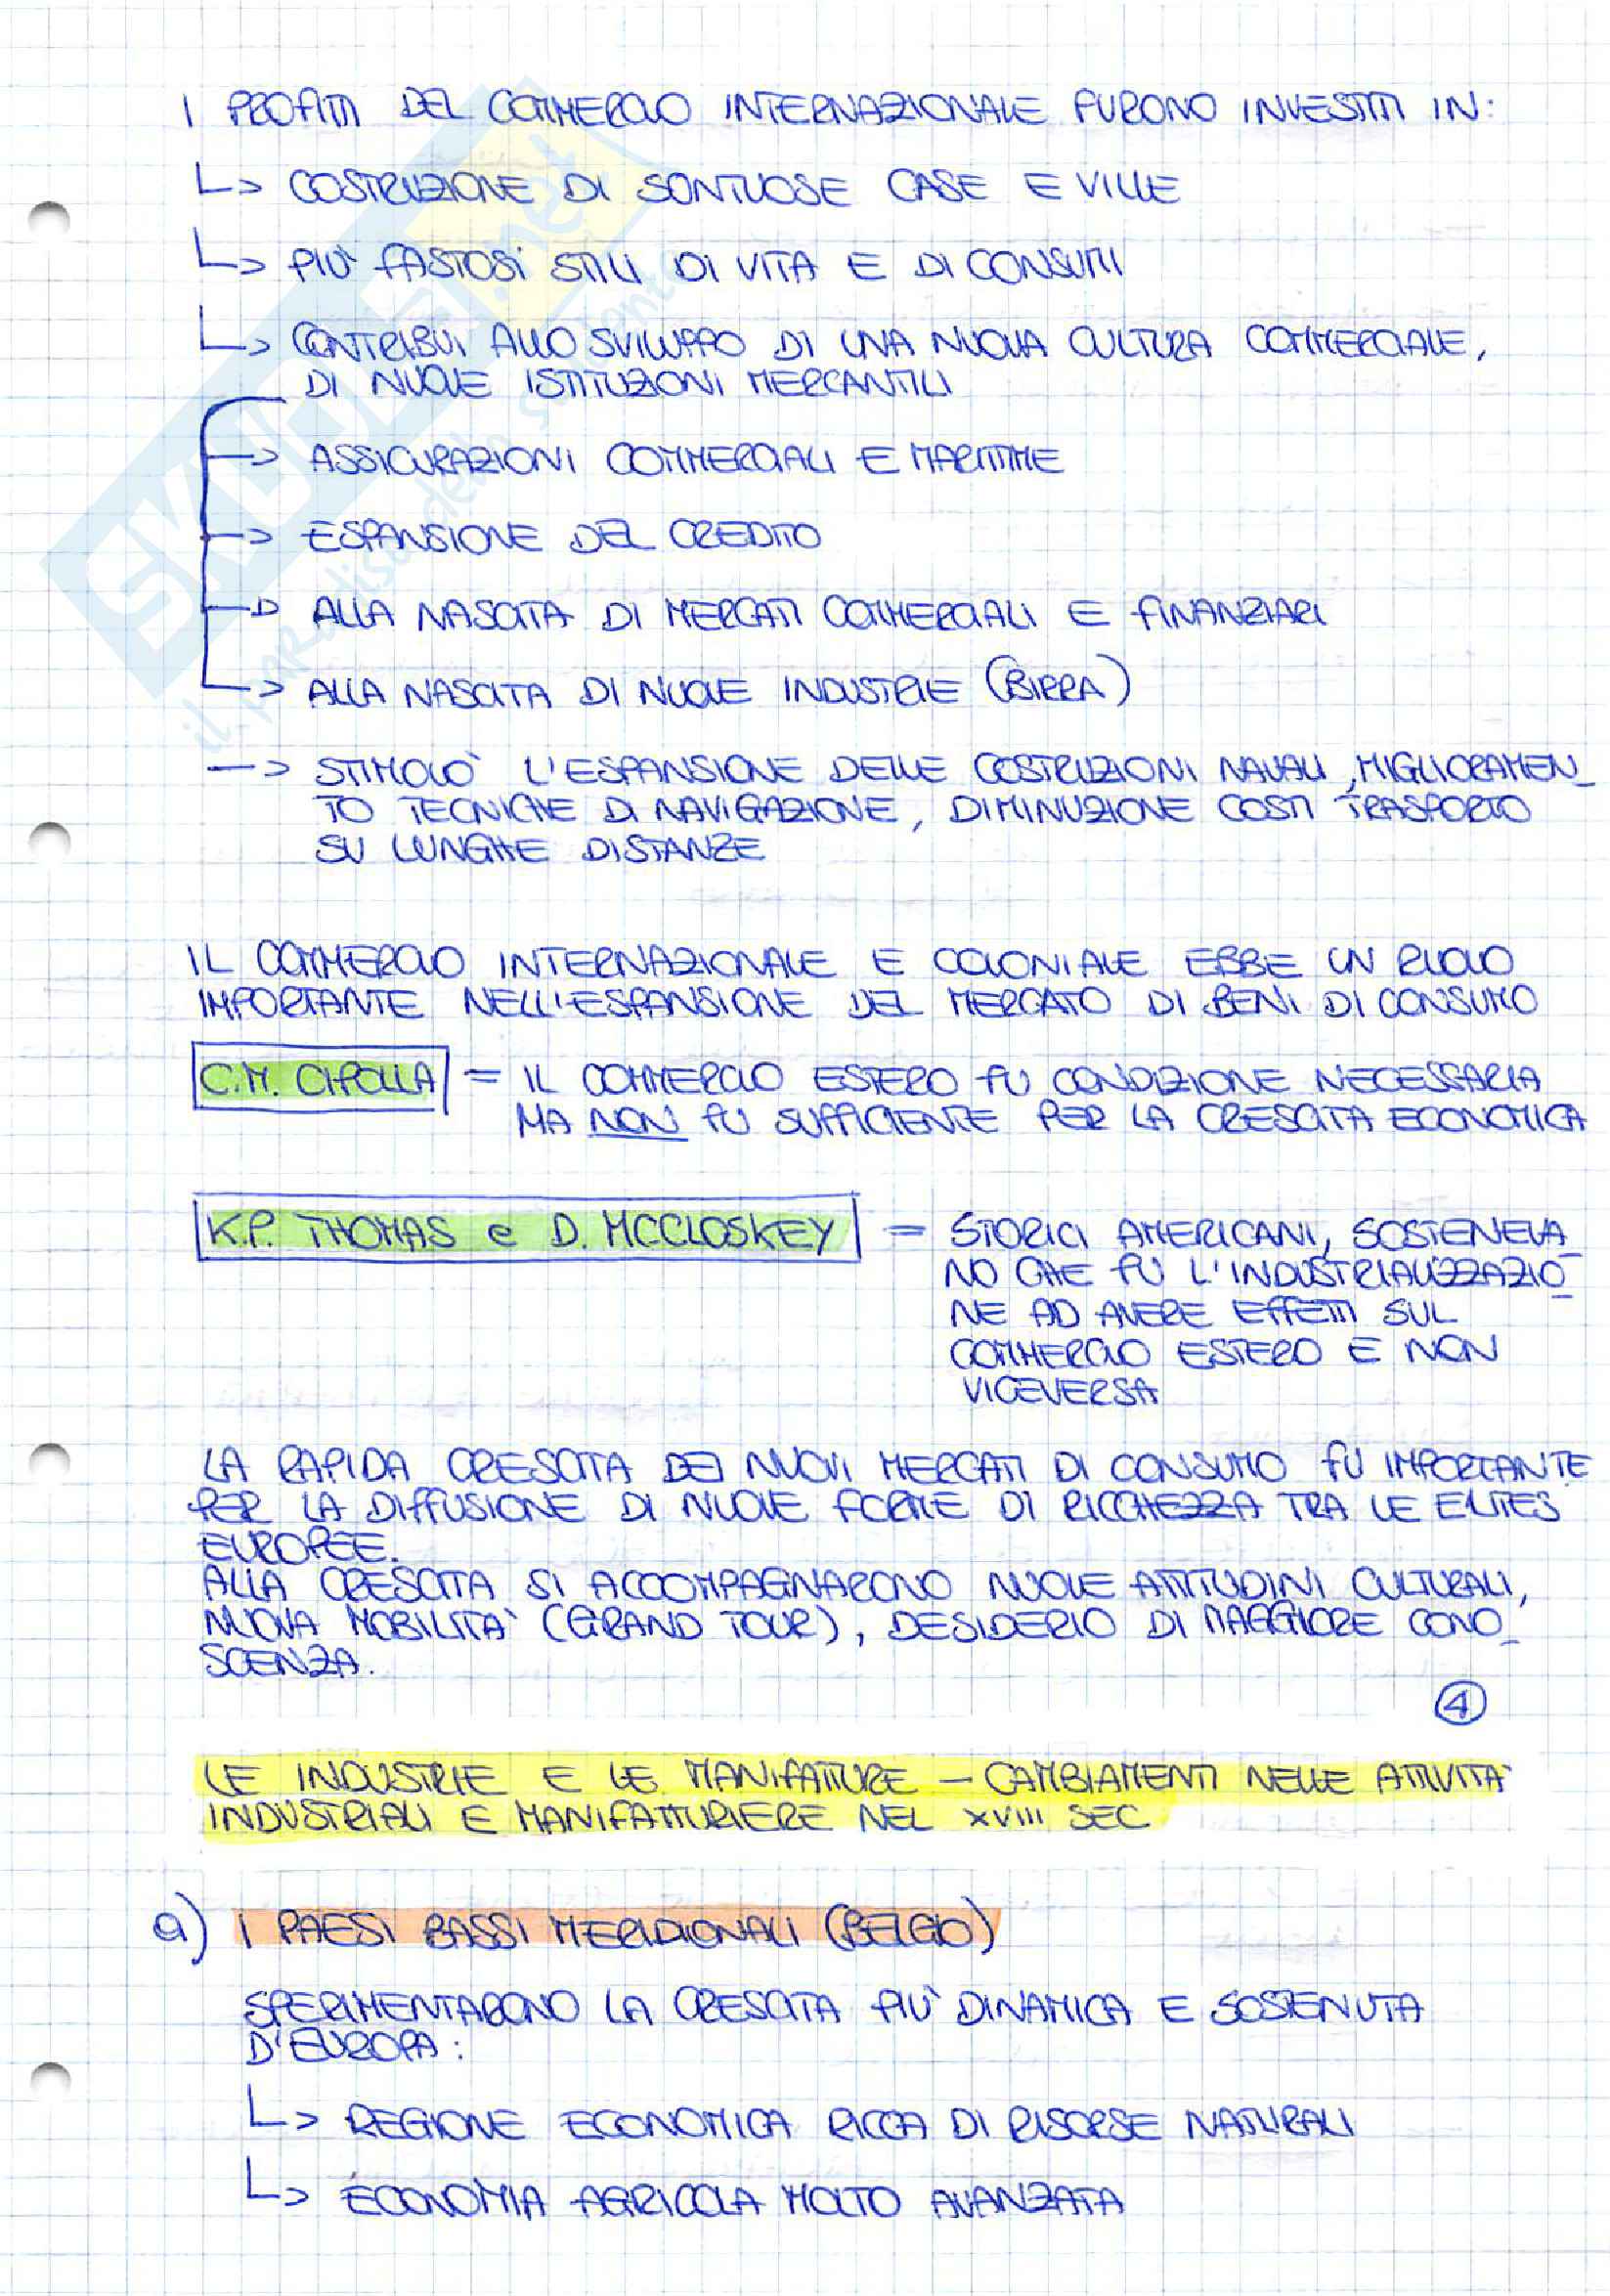 I PROFITTI DEL COMMERCIO INTERNAZIONALE FURONO INVESTITI IN:
↳ COSTRUZIONE DI SONTUOSE CASE E VILLE
↳ PIÙ FASTOSI STILI DI VITA E DI CONSUMI
↳ CONTRIBUI ALLO SVILUPPO DI UNA NUOVA CULTURA COMMERCIALE,
DI NUOVE ISTITUZIONI MERCANTILI
-> ASSICURAZIONI COMMERCIALI E MARITTIME
-> ESPANSIONE DEL CREDITO
-> ALLA NASCITA DI MERCATI COMMERCIALI E FINANZIARI
-> ALLA NASCITA DI NUOVE INDUSTRIE (BIRRA)
-> STIMOLO' L'ESPANSIONE DELLE COSTRUZIONI NAVALI, MIGLIORAMEN_
TO TECNICHE DI NAVIGAZIONE, DIMINUZIONE COSTI TRASPORTO
SU LUNGHE DISTANZE
IL COMMERCIO INTERNAZIONALE E COLONIALE EBBE UN RUOLO
IMPORTANTE NELL'ESPANSIONE DEL MERCATO DI BENI DI CONSUMO
C.M. CIPOLLA = IL COMMERCIO ESTERO FU CONDIZIONE NECESSARIA
MA NON FU SUFFICIENTE PER LA CRESCITA ECONOMICA
K.P. THOMAS e D. MCCLOSKEY = STORICI AMERICANI, SOSTENEVA_
NO CHE FU L'INDUSTRIALIZZAZIO_
NE AD AVERE EFFETTI SUL
COMMERCIO ESTERO E NON
VICEVERSA
LA RAPIDA CRESCITA DEI NUOVI MERCATI DI CONSUMO FU IMPORTANTE
PER LA DIFFUSIONE DI NUOVE FORME DI RICCHEZZA TRA LE ELITES
EUROPEE.
ALLA CRESCITA SI ACCOMPAGNARONO NUOVE ATTITUDINI CULTURALI,
NUOVA MOBILITA' (GRAND TOUR), DESIDERIO DI MAGGIORE CONO_
SCENZA.
4
LE INDUSTRIE E LE MANIFATTURE - CAMBIAMENTI NELLE ATTIVITA'
INDUSTRIALI E MANIFATTURIERE NEL XVIII SEC
a) I PAESI BASSI MERIDIONALI (BELGIO)
SPERIMENTARONO LA CRESCITA PIU' DINAMICA E SOSTENUTA
D'EUROPA:
↳ REGIONE ECONOMICA RICCA DI RISORSE NATURALI
↳ ECONOMIA AGRICOLA MOLTO AVANZATA
SKUOLA.net
il paradiso dello studente